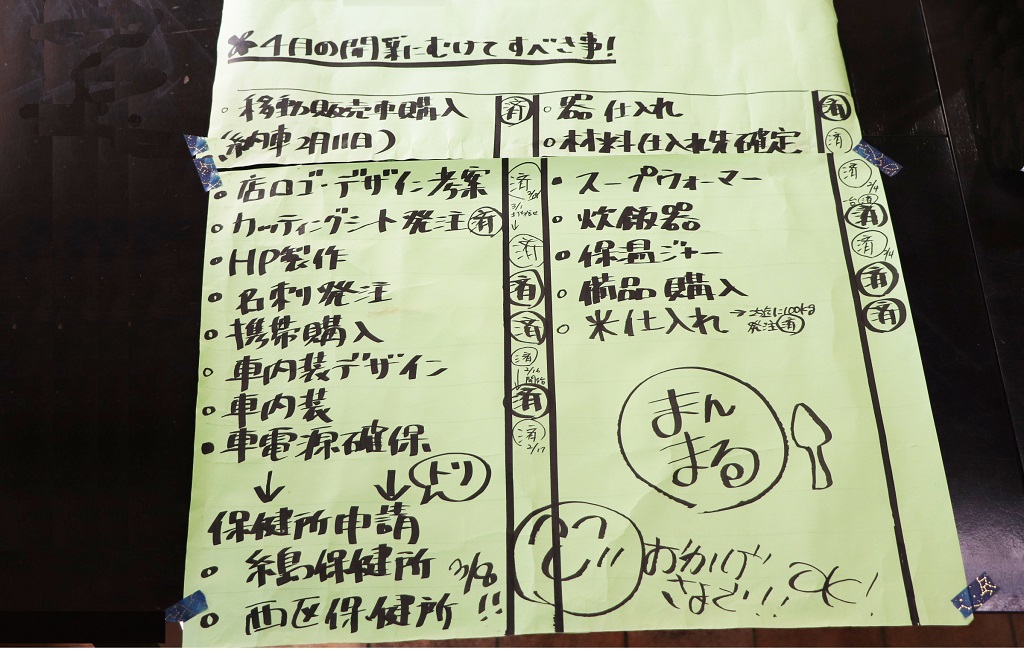 ※4月の開業にむけてすべき事!
・移動販売車購入 済
(納車2月11日)
・店ロゴ・デザイン考案 済
・カッティングシート発注 済
・HP製作 済
・名刺発注 済
・携帯購入 済
・車内装デザイン 済 2/16
・車内装 済
・車電源確保 済 2/17
↓ ↓ トリ
保健所申請
・糸島保健所 3/8
・西区保健所!!
・器仕入れ 済
・材料仕入れ先確定 済
・スープウォーマー 済 2/9
・炊飯器 済
・保温ジャー 済 2/4
・備品購入 済
・米仕入れ →大臣に100kg 済
発注済
まん
まる
おかげ
さまで!!! OK!